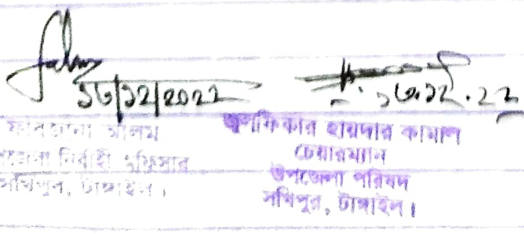 ১৩/১২/২০২২
ফারজানা আলম
উপজেলা নির্বাহী অফিসার
সখিপুর, টাঙ্গাইল।
১৩.১২.২২
জুলফিকার হায়দার কামাল
চেয়ারম্যান
উপজেলা পরিষদ
সখিপুর, টাঙ্গাইল।